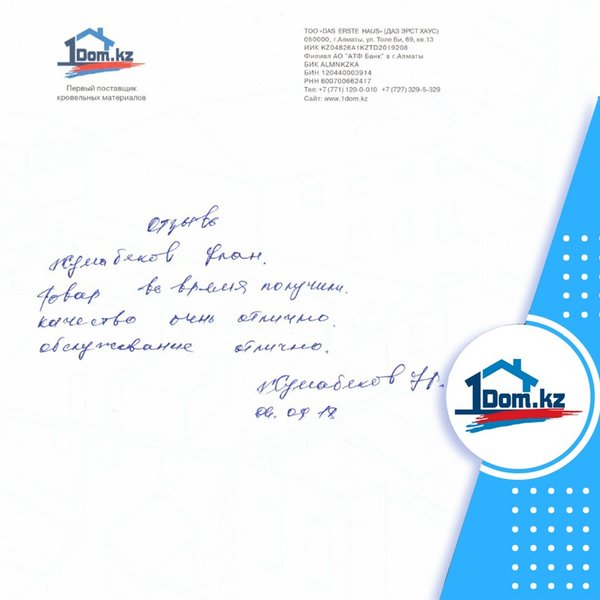 1Dom.kz
Первый поставщик
кровельных материалов
ТОО «DAS ERSTE HAUS» (ДАЗ ЭРСТ ХАУС)
050000, г.Алматы, ул. Толе Би, 69, кв.13
ИИК KZ04826A1KZTD2019208
Филиал АО "АТФ Банк" в г.Алматы
БИК ALMNKZKA
БИН 120440003914
РНН 600700662417
Тел: +7 (771) 120-0-010 +7 (727) 329-5-329
Сайт: www.1dom.kz
отзывь
Жумабеков Улан.
Товар во время получили.
качество очнь отлично.
обслуживание отлично.
Жумабеков
1Dom.kz